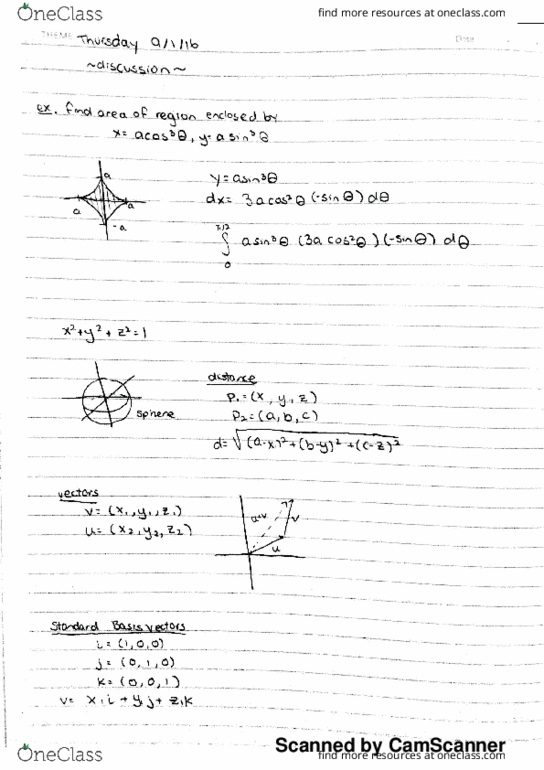 OneClass
find more resources at oneclass.com
THEME
Date
Thursday 9/1/16
~discussion~
ex. find area of region enclosed by
x = acos³θ, y = a sin³θ
a
a
a
-a
y = asin³θ
dx = 3a cos²θ (-sin θ) dθ
π/2
∫ a sin³θ (3a cos²θ)(-sinθ) dθ
0
x² + y² + z² = 1
sphere
distance
P₁ = (x, y, z)
P₂ = (a, b, c)
d = √(a-x)² + (b-y)² + (c-z)²
vectors
v = (x₁, y₁, z₁)
u = (x₂, y₂, z₂)
v
u
Standard Basis vectors
i = (1,0,0)
j = (0,1,0)
k = (0,0,1)
v = x₁i + y₁j + z₁k
Scanned by CamScanner
OneClass
find more resources at oneclass.com